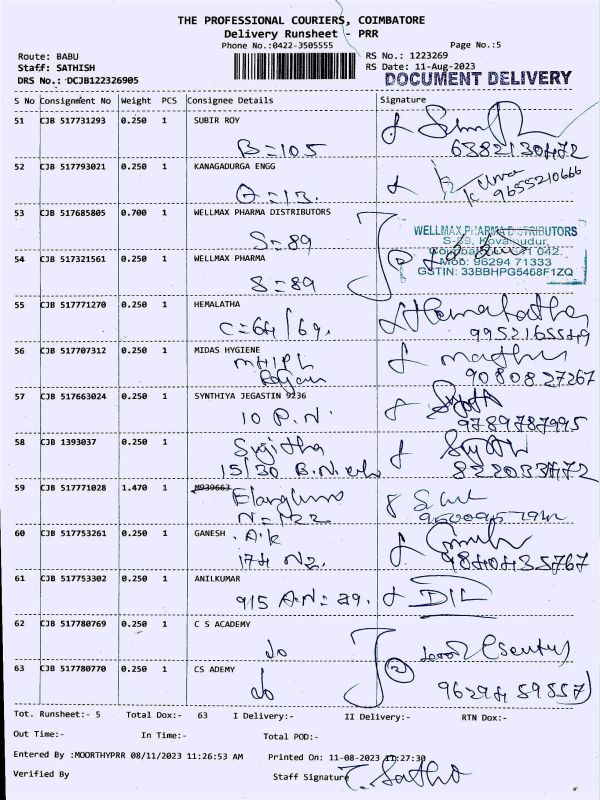 THE PROFESSIONAL COURIERS, COIMBATORE
Delivery Runsheet - PRR
Phone No.:0422-3505555 Page No.:5
Route: BABU RS No.: 1223269
Staff: SATHISH RS Date: 11-Aug-2023
DRS No.: DCJB122326905 DOCUMENT DELIVERY
S No Consignment No Weight PCS Consignee Details Signature
51 CJB 517731293 0.250 1 SUBIR ROY
B=105 6382130472
52 CJB 517793021 0.250 1 KANAGADURGA ENGG
9655210666
53 CJB 517685805 0.700 1 WELLMAX PHARMA DISTRIBUTORS
S=89
WELLMAX PHARMA DISTRIBUTORS
54 CJB 517321561 0.250 1 WELLMAX PHARMA
S=89
Mob: 96294 71333
GSTIN: 33BBHPG5468F1ZQ
55 CJB 517771270 0.250 1 HEMALATHA
C=64/69. Hemalatha
9952165549
56 CJB 517707312 0.250 1 MIDAS HYGIENE
MHIPL
9080827267
57 CJB 517663024 0.250 1 SYNTHIYA JEGASTIN 9236
10 P.N. 9789787995
58 CJB 1393037 0.250 1
Sujitha
15/30 B.N.
59 CJB 517771028 1.470 1 M939663
N=122
60 CJB 517753261 0.250 1 GANESH . A.K
174 N2. 9840435767
61 CJB 517753302 0.250 1 ANILKUMAR
915 A.N=29.
62 CJB 517780769 0.250 1 C S ACADEMY
do
63 CJB 517780770 0.250 1 CS ADEMY
do 2 9629459557
Tot. Runsheet:- 5 Total Dox:- 63 I Delivery:- II Delivery:- RTN Dox:-
Out Time:- In Time:- Total POD:-
Entered By :MOORTHYPRR 08/11/2023 11:26:53 AM Printed On: 11-08-2023 11:27:30
Verified By Staff Signature